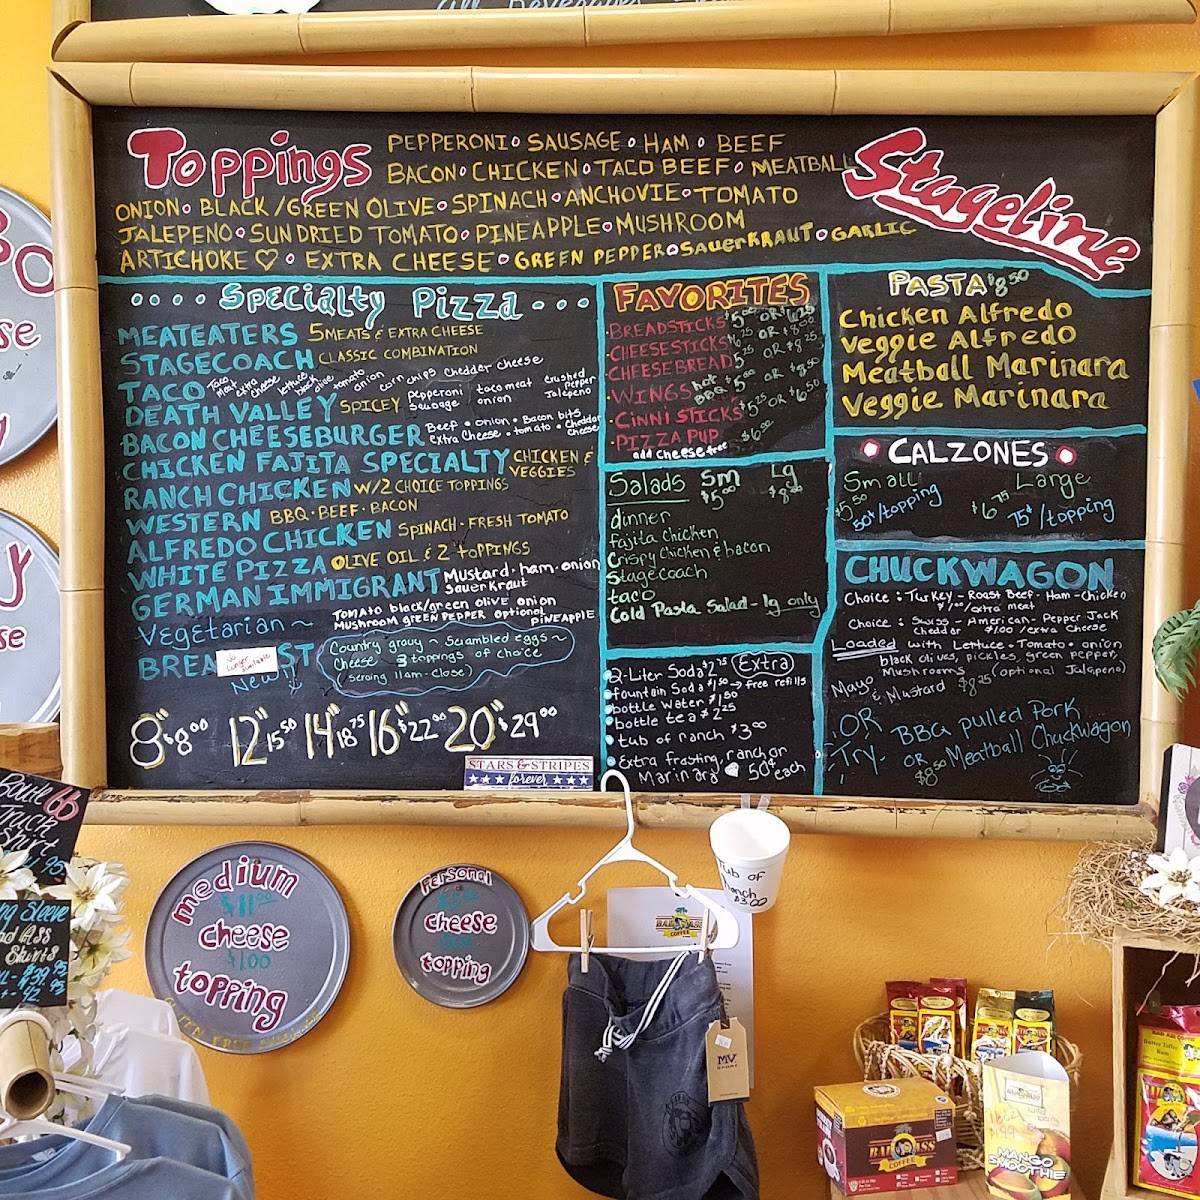 Toppings
PEPPERONI • SAUSAGE • HAM • BEEF
BACON • CHICKEN • TACO BEEF • MEATBALL
ONION • BLACK/GREEN OLIVE • SPINACH • ANCHOVIE • TOMATO
JALEPENO • SUN DRIED TOMATO • PINEAPPLE • MUSHROOM
ARTICHOKE ♡ • EXTRA CHEESE • GREEN PEPPER • SAUERKRAUT • GARLIC
Stageline
Specialty Pizza
MEATEATERS 5 MEATS & EXTRA CHEESE
STAGECOACH CLASSIC COMBINATION
TACO Taco meat extra cheese lettuce black olive tomato onion corn chips chedder cheese
DEATH VALLEY SPICEY pepperoni sausage taco meat onion crushed pepper Jalepeno
BACON CHEESEBURGER Beef • onion • Bacon bits
Extra Cheese • tomato • Cheddar cheese
CHICKEN FAJITA SPECIALTY CHICKEN & VEGGIES
RANCH CHICKEN W/2 CHOICE TOPPINGS
WESTERN BBQ • BEEF • BACON
ALFREDO CHICKEN SPINACH • FRESH TOMATO
WHITE PIZZA OLIVE OIL & 2 TOPPINGS
GERMAN IMMIGRANT Mustard • ham • onion
Sauerkraut
Vegetarian ~ Tomato black/green olive onion
Mushroom GREEN PEPPER optional PINEAPPLE
BREA ST
No Longer Available
New!
Country gravy ~ Scrambled eggs ~
Cheese 3 toppings of choice
(serving 11am - Close)
8" $8.00 12" 15.50 14" 18.75 16" $22.00 20" $29.00
STARS & STRIPES
forever
FAVORITES
BREADSTICKS $5.00 OR $6.25
CHEESESTICKS $6.25 OR $8.00
CHEESE BREAD 5.25 OR $8.25
WINGS hot BBQ $5.00 OR $8.50
CINNI STICKS $5.25 OR $6.50
PIZZA PUP $6.00
add cheese free
Salads Sm $5.00 Lg $8.00
dinner
fajita chicken
Crispy Chicken & bacon
Stagecoach
taco
Cold Pasta Salad - lg only
2-Liter Soda $2.75 (Extra)
fountain Soda $1.50 → free refills
bottle Water $1.50
bottle tea $2.25
tub of ranch $3.00
Extra frosting, ranch or
Marinara 50¢ each
PASTA $8.50
Chicken Alfredo
Veggie Alfredo
Meatball Marinara
Veggie Marinara
CALZONES
Small Large
$5.50 50¢/topping $6.75 75¢/topping
CHUCKWAGON
Choice: Turkey - Roast Beef - Ham - Chicken
$1.00/extra meat
Choice: Swiss - American - Pepper Jack
Cheddar $1.00/extra Cheese
Loaded with Lettuce • Tomato • onion
black olives, pickles, green pepper,
Mushrooms (optional Jalapeno)
Mayo & Mustard $8.25
OR
Try BBQ pulled Pork
OR Meatball Chuckwagon
$8.50
medium
$11.00
cheese
$1.00
topping
Personal
cheese
topping
Tub of
Ranch
$3.00
Route 66
Truck
Shirt
BAD ASS
COFFEE
MV
SPORT
BAD ASS
COFFEE
MANGO
SMOOTHIE